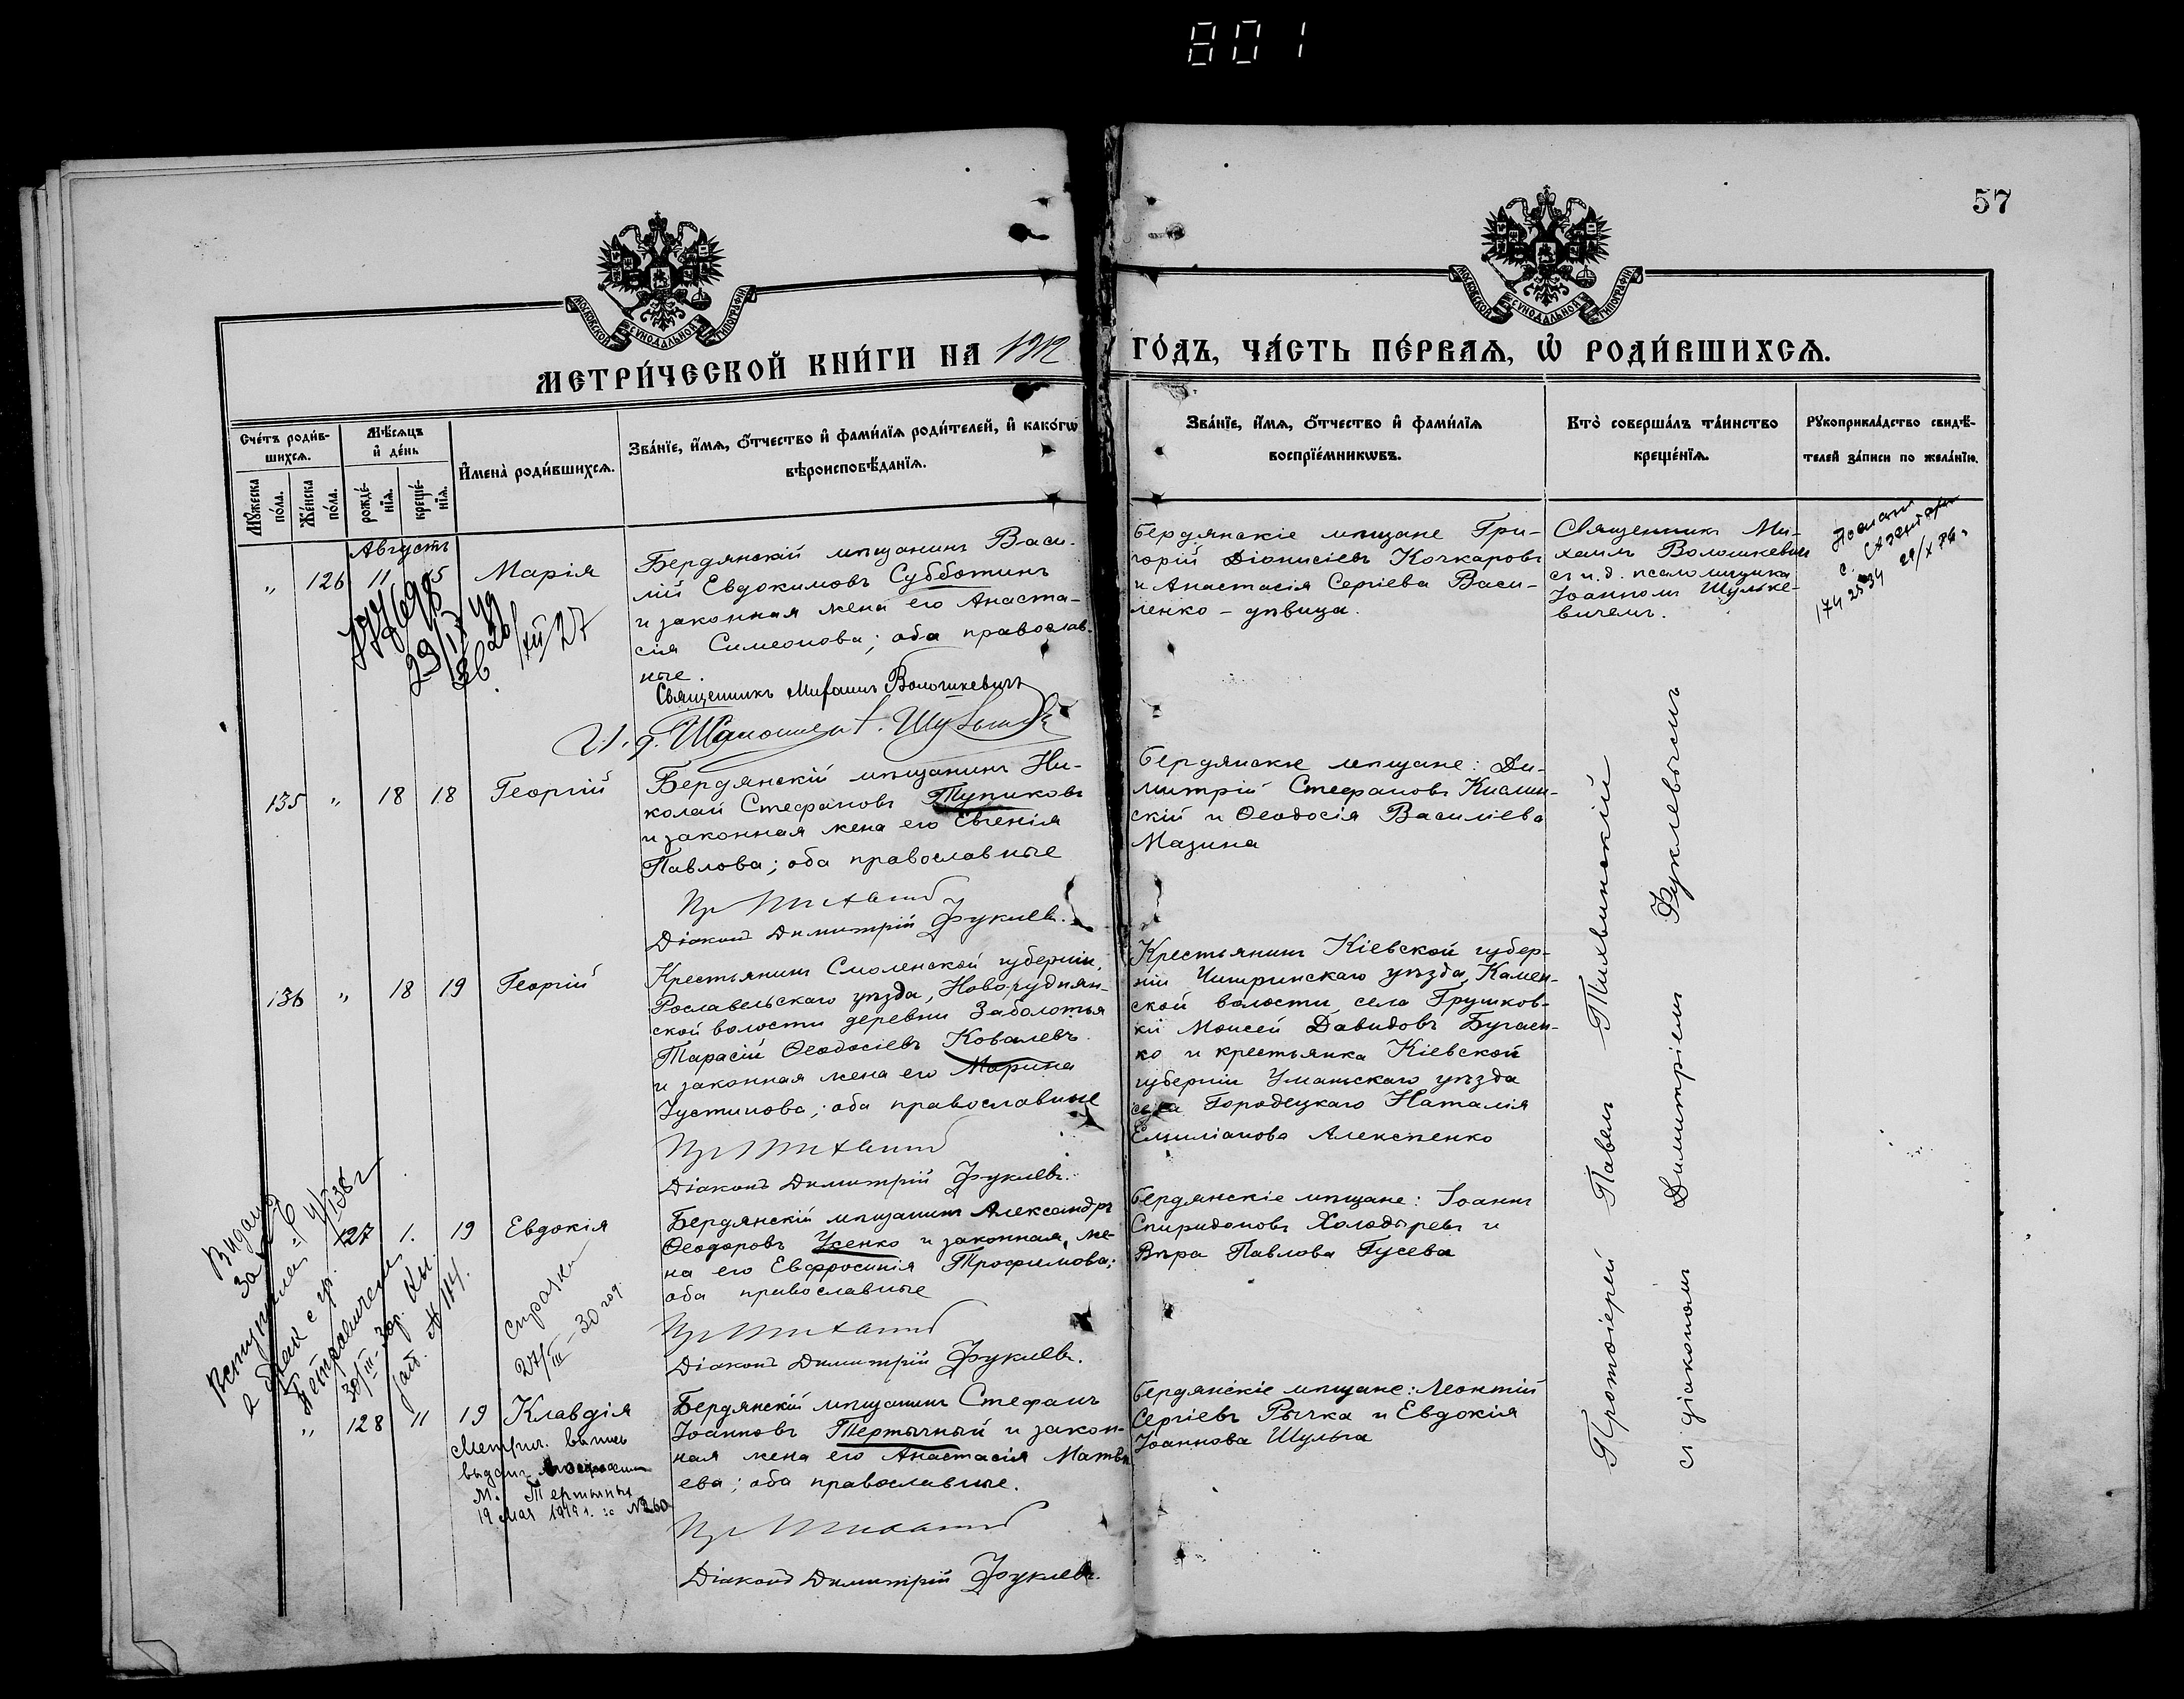 801
57
МОСКОВСКОЙ СѴНОДАЛЬНОЙ ТИПОГРАФІИ
МОСКОВСКОЙ СѴНОДАЛЬНОЙ ТИПОГРАФІИ
МЕТРИ́ЧЕСКОЙ КНИ́ГИ НА 1912 ГО́ДЪ, ЧА́СТЬ ПЕ́РВАѦ, Ѡ҆ РОДИ́ВШИХСѦ.
Сче́тъ роди́в-
шихсѧ.
Мѣ́сѧцъ
и҆ де́нь
Мꙋ́жеска
по́ла.
Же́нска
по́ла.
рожде́-
нїѧ.
креще́-
нїѧ.
И҆мена̀ роди́вшихсѧ.
Зва́нїе, и҆́мѧ, ѻ҆́тчество и҆ фами́лїѧ роди́телей, и҆ како́гѡ
вѣроисповѣ́данїѧ.
Зва́нїе, и҆́мѧ, ѻ҆́тчество и҆ фами́лїѧ
воспрїе́мникѡвъ.
Кто̀ соверша́лъ та́инство
креще́нїѧ.
Рꙋкоприкла́дство свидѣ́-
телей за́писи по жела́нїю.
Августъ
" 126 11 15 Марія
Бердянскій мѣщанинъ Васи-
лій Евдокимовъ Субботинъ
и законная жена его Анаста-
сія Симеонова; оба православ-
ные.
Священникъ Михаилъ Волошкевичъ
И. д.
Бердянскіе мѣщане Гри-
горій Діонисіевъ Кочкаровъ
и Анастасія Сергіева Васи-
ленко - дѣвица.
Священник Ми-
хаилъ Волошкевич
съ и. д. псаломщика
Іоанномъ Шульке-
вичемъ.
135 " 18 18 Георгій
Бердянскій мѣщанинъ Ни-
колай Стефановъ Тупиковъ
и законная жена его Евгенія
Павлова; оба православные
Діаконъ Димитрій Фуклевъ.
Бердянскіе мѣщане: Ди-
митрій Стефановъ Кислин-
скій и Ѳеодосія Василіева
Мазина
136 " 18 19 Георгій
Крестьянинъ Смоленской губерніи,
Рославельскаго уѣзда, Новоруднян-
ской волости деревни Заболотья
Тарасій Ѳеодосіевъ Ковалевъ
и законная жена его Марина
Іустинова; оба православные
Діаконъ Димитрій Фуклевъ.
Крестьянинъ Кіевской губер-
ніи Чигиринскаго уѣзда, Камен-
ской волости села Грушков-
ки Моисей Давидовъ Бугаен-
ко и крестьянка Кіевской
губерніи Уманьскаго уѣзда
села Городецкаго Наталія
Емиліанова Алексѣенко
127 1. 19 Евдокія
Бердянскій мѣщанинъ Александръ
Ѳеодоровъ Усенко и законная же-
на его Евфросинія Трофимова;
оба православные
Діаконъ Димитрій Фуклевъ.
Бердянскіе мѣщане: Іоаннъ
Спиридоновъ Холодыревъ и
Вѣра Павлова Гусева
27/III-30 год
" 128 11 19 Клавдія
Метрич. выпись
выдана
М. Тертычных
19 мая 1919 г. за № 260
Бердянскій мѣщанинъ Стефанъ
Іоанновъ Тертычный и закон-
ная жена его Анастасія Матвѣ-
ева; оба православные.
Діаконъ Димитрій Фуклевъ.
Бердянскіе мѣщане: Леонтій
Сергіевъ Рычка и Евдокія
Іоаннова Шульга
Протоіерей Павелъ Тихвинскій
съ діакономъ Димитріемъ Фуклевымъ